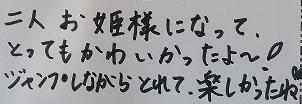 二人お姫様になって、
とってもかわいかったよ〜!
ジャンプしながらとれて、楽しかったね